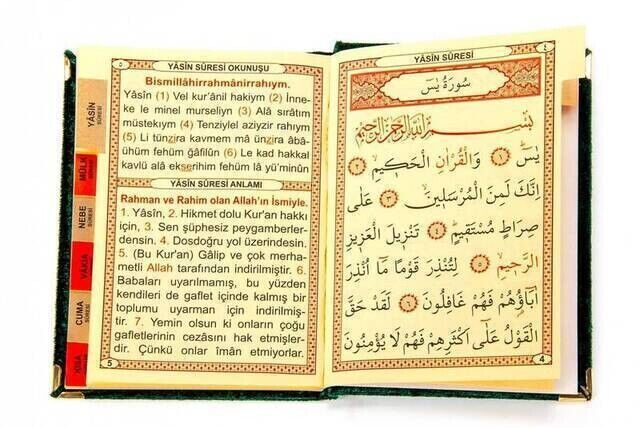 YÂSÎN SÛRESİ
٤
سُورَةُ يٰسٓ
بِسْمِ اللّٰهِ الرَّحْمٰنِ الرَّحِيمِ
يٰسٓ ﴿١﴾ وَالْقُرْاٰنِ الْحَكِيمِ ﴿٢﴾
اِنَّكَ لَمِنَ الْمُرْسَلِينَ ﴿٣﴾ عَلٰى
صِرَاطٍ مُسْتَقِيمٍ ﴿٤﴾ تَنْزِيلَ الْعَزِيزِ
الرَّحِيمِ ﴿٥﴾ لِتُنْذِرَ قَوْمًا مَٓا اُنْذِرَ
اٰبَٓاؤُهُمْ فَهُمْ غَافِلُونَ ﴿٦﴾ لَقَدْ حَقَّ
الْقَوْلُ عَلٰٓى اَكْثَرِهِمْ فَهُمْ لَا يُؤْمِنُونَ
4
٥
YÂSÎN SÛRESİ OKUNUŞU
Bismillâhirrahmânirrahıym.
Yâsîn (1) Vel kur'ânil hakiym (2) İnne-
ke le minel murseliyn (3) Alâ sırâtım
müstekıym (4) Tenziylel aziyzir rahıym
(5) Li tünzira kavmem mâ ünzira âbâ-
ühüm fehüm ğâfilûn (6) Le kad hakkal
kavlü alâ ekserihim fehüm lâ yü'minûn
YÂSÎN SÛRESİ ANLAMI
Rahman ve Rahim olan Allah'ın İsmiyle.
1. Yâsîn, 2. Hikmet dolu Kur'an hakkı
için, 3. Sen şüphesiz peygamberler-
densin. 4. Dosdoğru yol üzerindesin.
5. (Bu Kur'an) Gâlip ve çok merha-
metli Allah tarafından indirilmiştir. 6.
Babaları uyarılmamış, bu yüzden
kendileri de gaflet içinde kalmış bir
toplumu uyarman için indirilmiş-
tir. 7. Yemin olsun ki onların çoğu
gafletlerinin cezasını hak etmişler-
dir. Çünkü onlar îmân etmiyorlar.
5
YÂSÎN
SÛRESİ
MÜLK
SÛRESİ
NEBE
SÛRESİ
VAKIA
SÛRESİ
CUMA
SÛRESİ